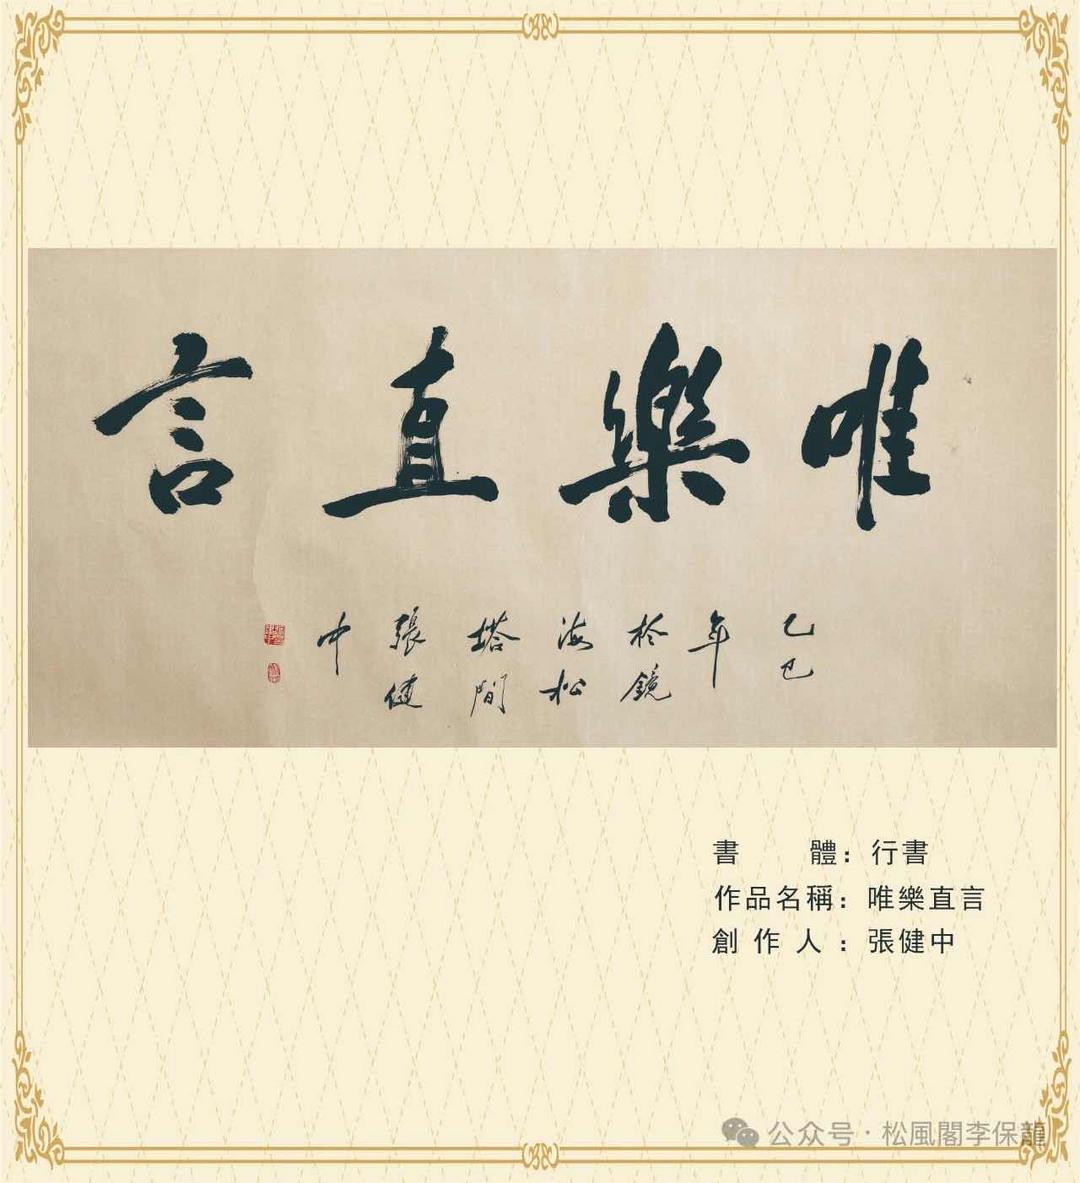 唯樂直言
乙巳
年
於鏡
海松
塔間
張健
中
書體：行書
作品名稱：唯樂直言
創作人：張健中
公众号·松風閣李保龍